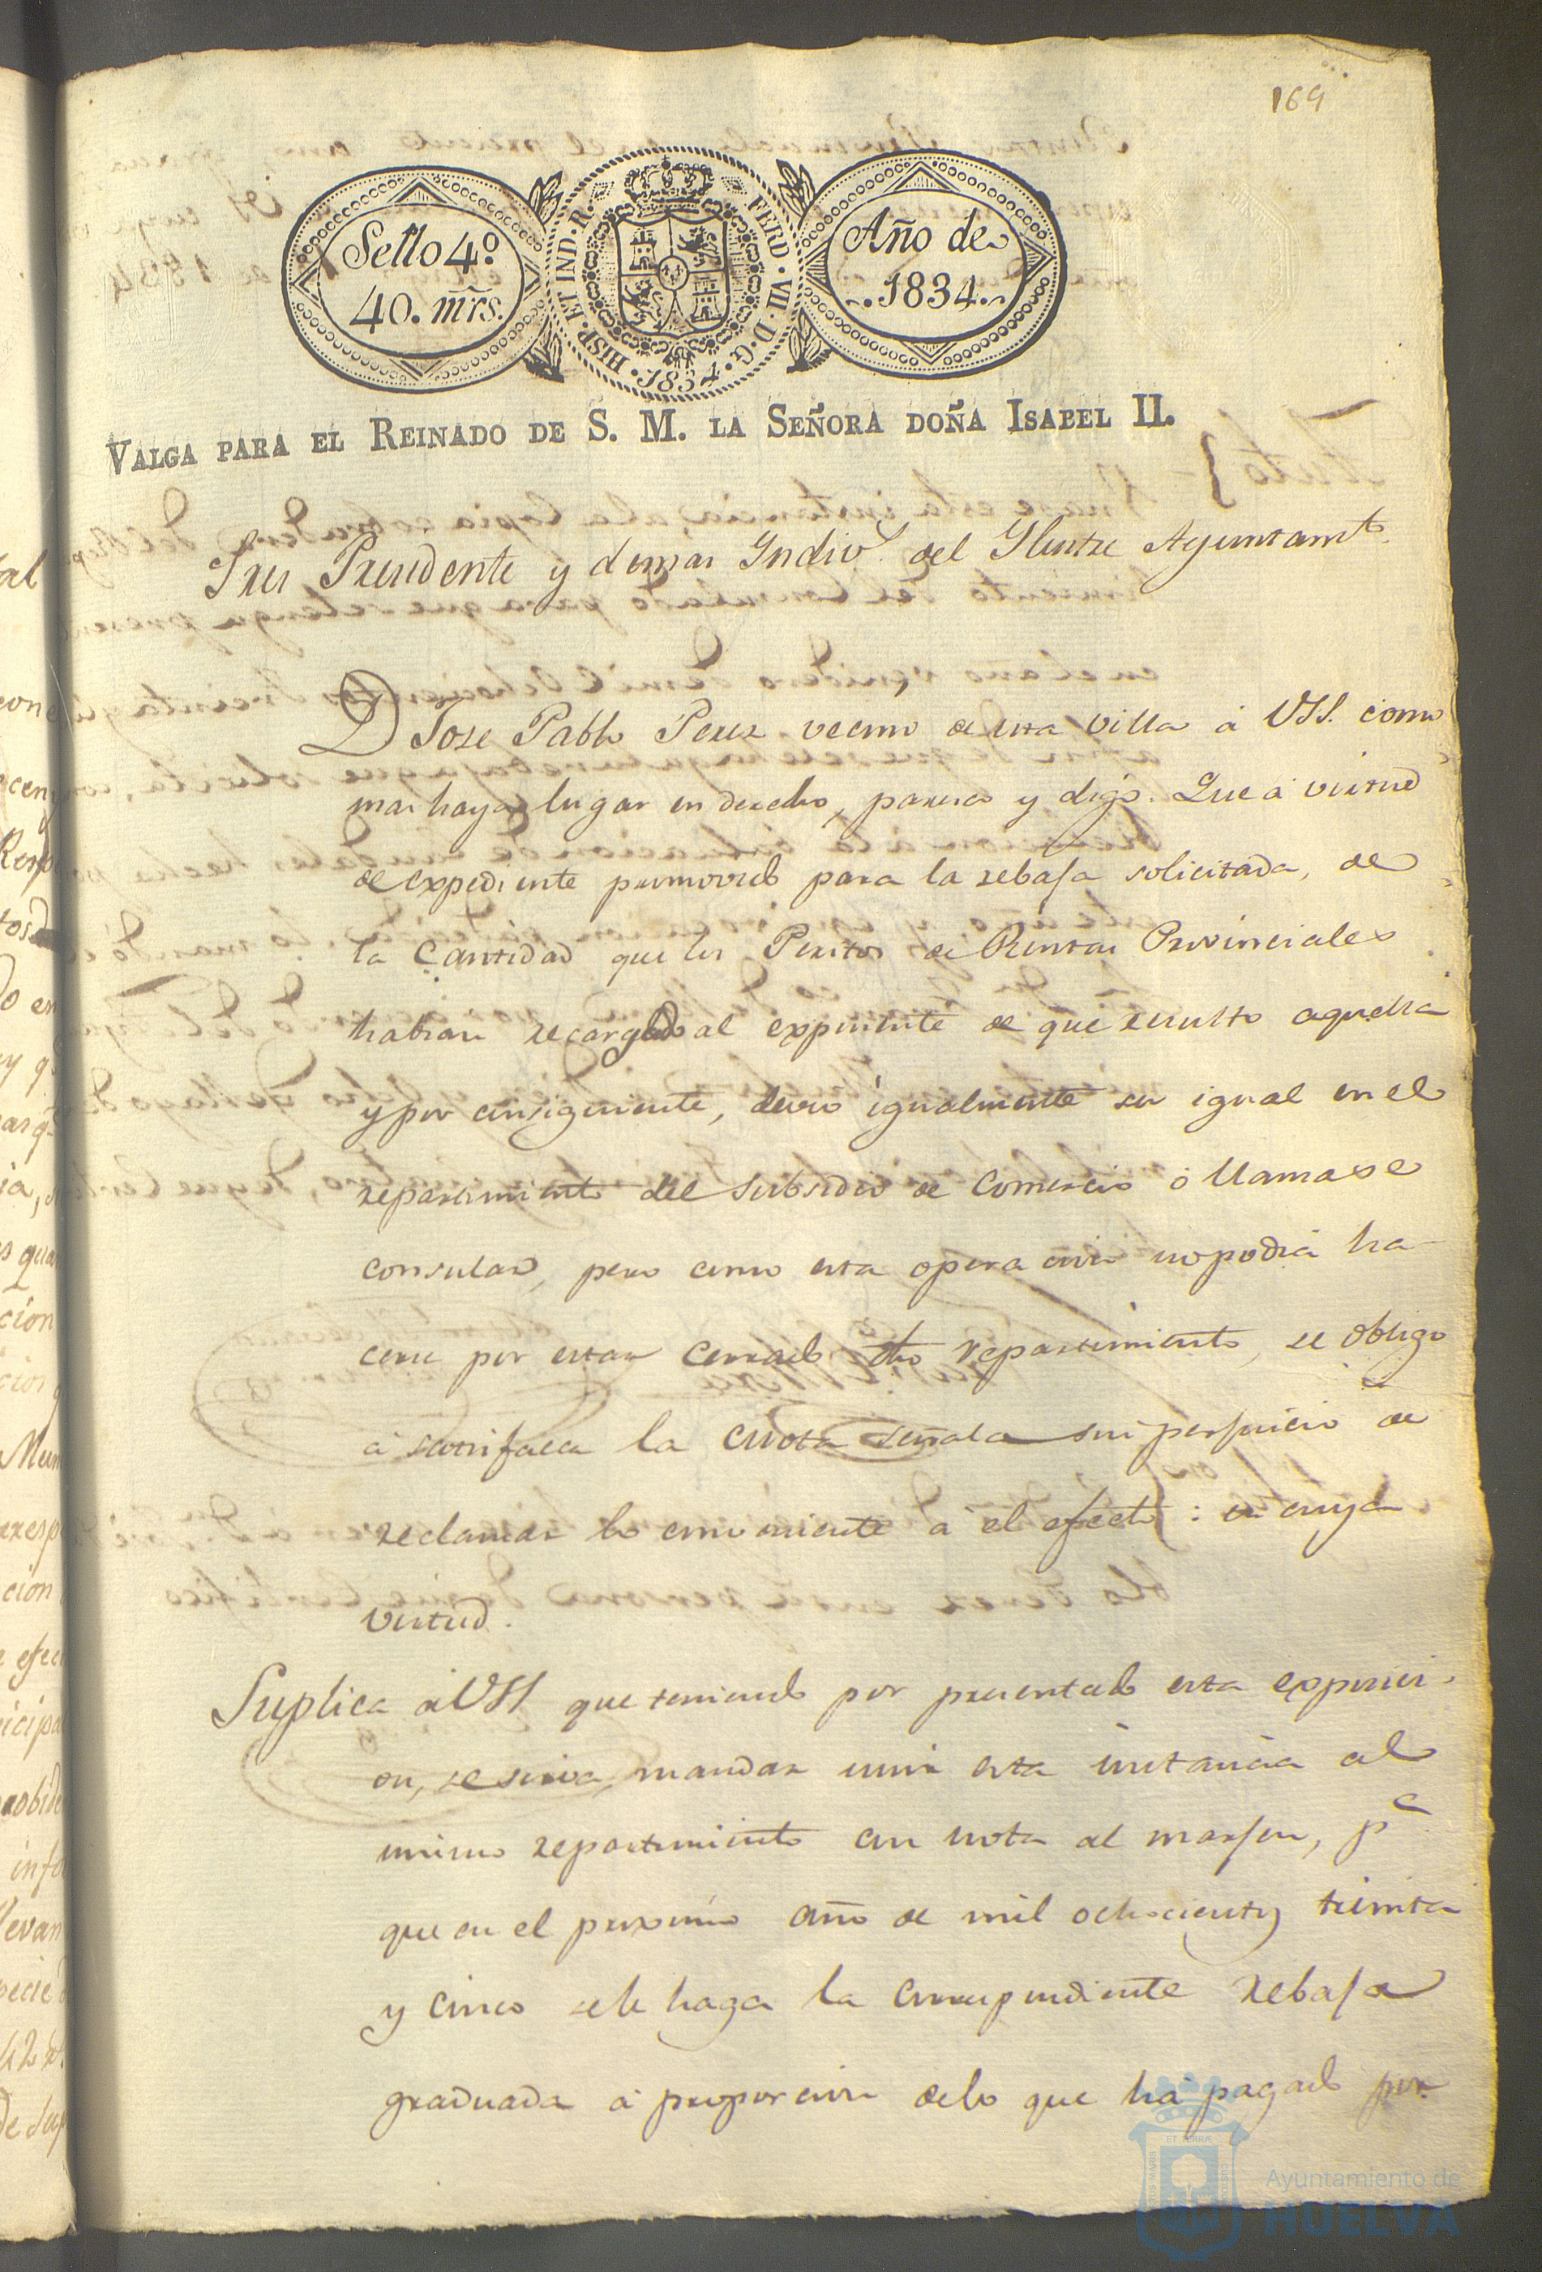 169
Sello 4º
40. mrs.
HISP. ET IND. R.
FERD. VII. D. G.
1834.
Año de
1834.
VALGA PARA EL REINADO DE S. M. LA SEÑORA DOÑA ISABEL II.
Sres Presidente y demas Indivs. del Ilustre Ayuntamto.
D Jose Pablo Perez vecino de esta villa á VSS. como
mas haya lugar en derecho, paresco y digo. Que á virtud
de expediente promovido para la rebaja solicitada, de
la cantidad que los Peritos de Rentas Provinciales
habian recargado al exponente de que resultó aquella
y por consiguiente, devio igualmente ser igual en el
repartimiento del subsidio de comercio ó llamase
consular, pero como esta operacion no podia ha
cerse por estar cerrado dho repartimiento, se obligo
á satisfacer la cuota señala sin perjuicio de
reclamar lo conveniente á el efecto: en cuya
virtud.
Suplica á VSS que teniendo por presentado esta exposici
on, se sirva, mandar unir esta instancia al
mismo repartimiento con nota al marjen, pa
que en el proximo año de mil ochocientos treinta
y cinco se le haga la correspondiente rebaja
graduada á proporcion de lo que há pagado por
Ayuntamiento de
HUELVA